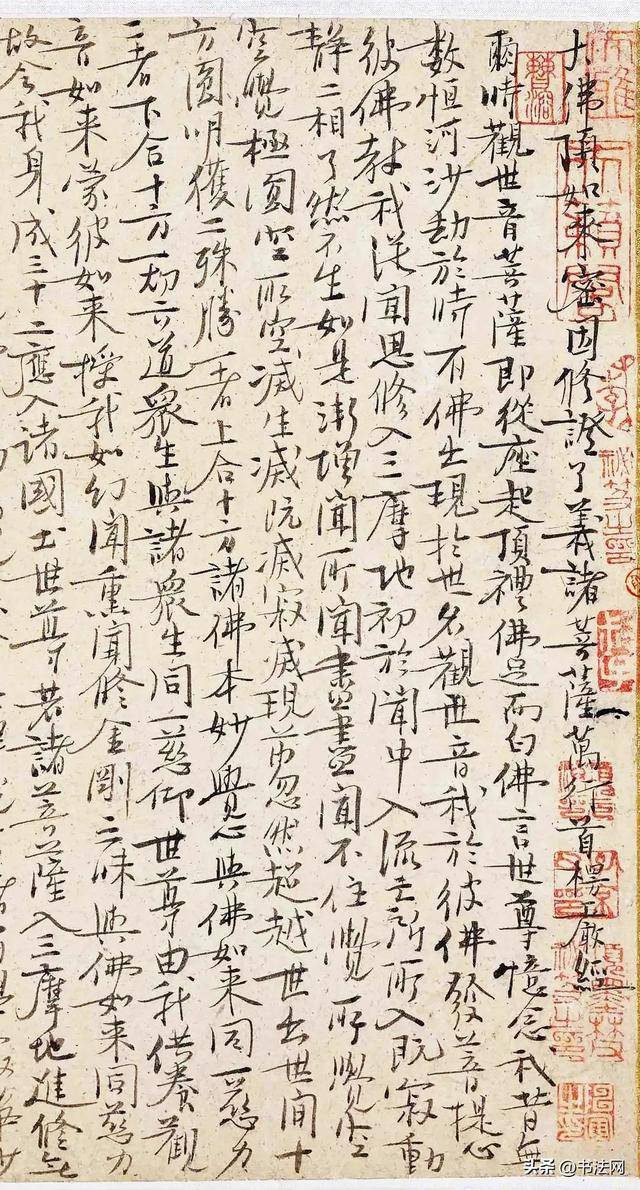 大佛頂如來密因修證了義諸菩薩萬行首楞嚴經
爾時觀世音菩薩即從座起頂禮佛足而白佛言世尊憶念我昔無
數恒河沙劫於時有佛出現於世名觀世音我於彼佛發菩提心
彼佛教我從聞思修入三摩地初於聞中入流亡所所入既寂動
靜二相了然不生如是漸增聞所聞盡盡聞不住覺所覺空
空覺極圓空所空滅生滅既滅寂滅現前忽然超越世出世間十
方圓明獲二殊勝一者上合十方諸佛本妙覺心與佛如來同一慈力
二者下合十方一切六道眾生與諸眾生同一悲仰世尊由我供養觀
音如來蒙彼如來授我如幻聞熏聞修金剛三昧與佛如來同慈力
故令我身成三十二應入諸國土世尊若諸菩薩入三摩地進修無
头条 @书法网